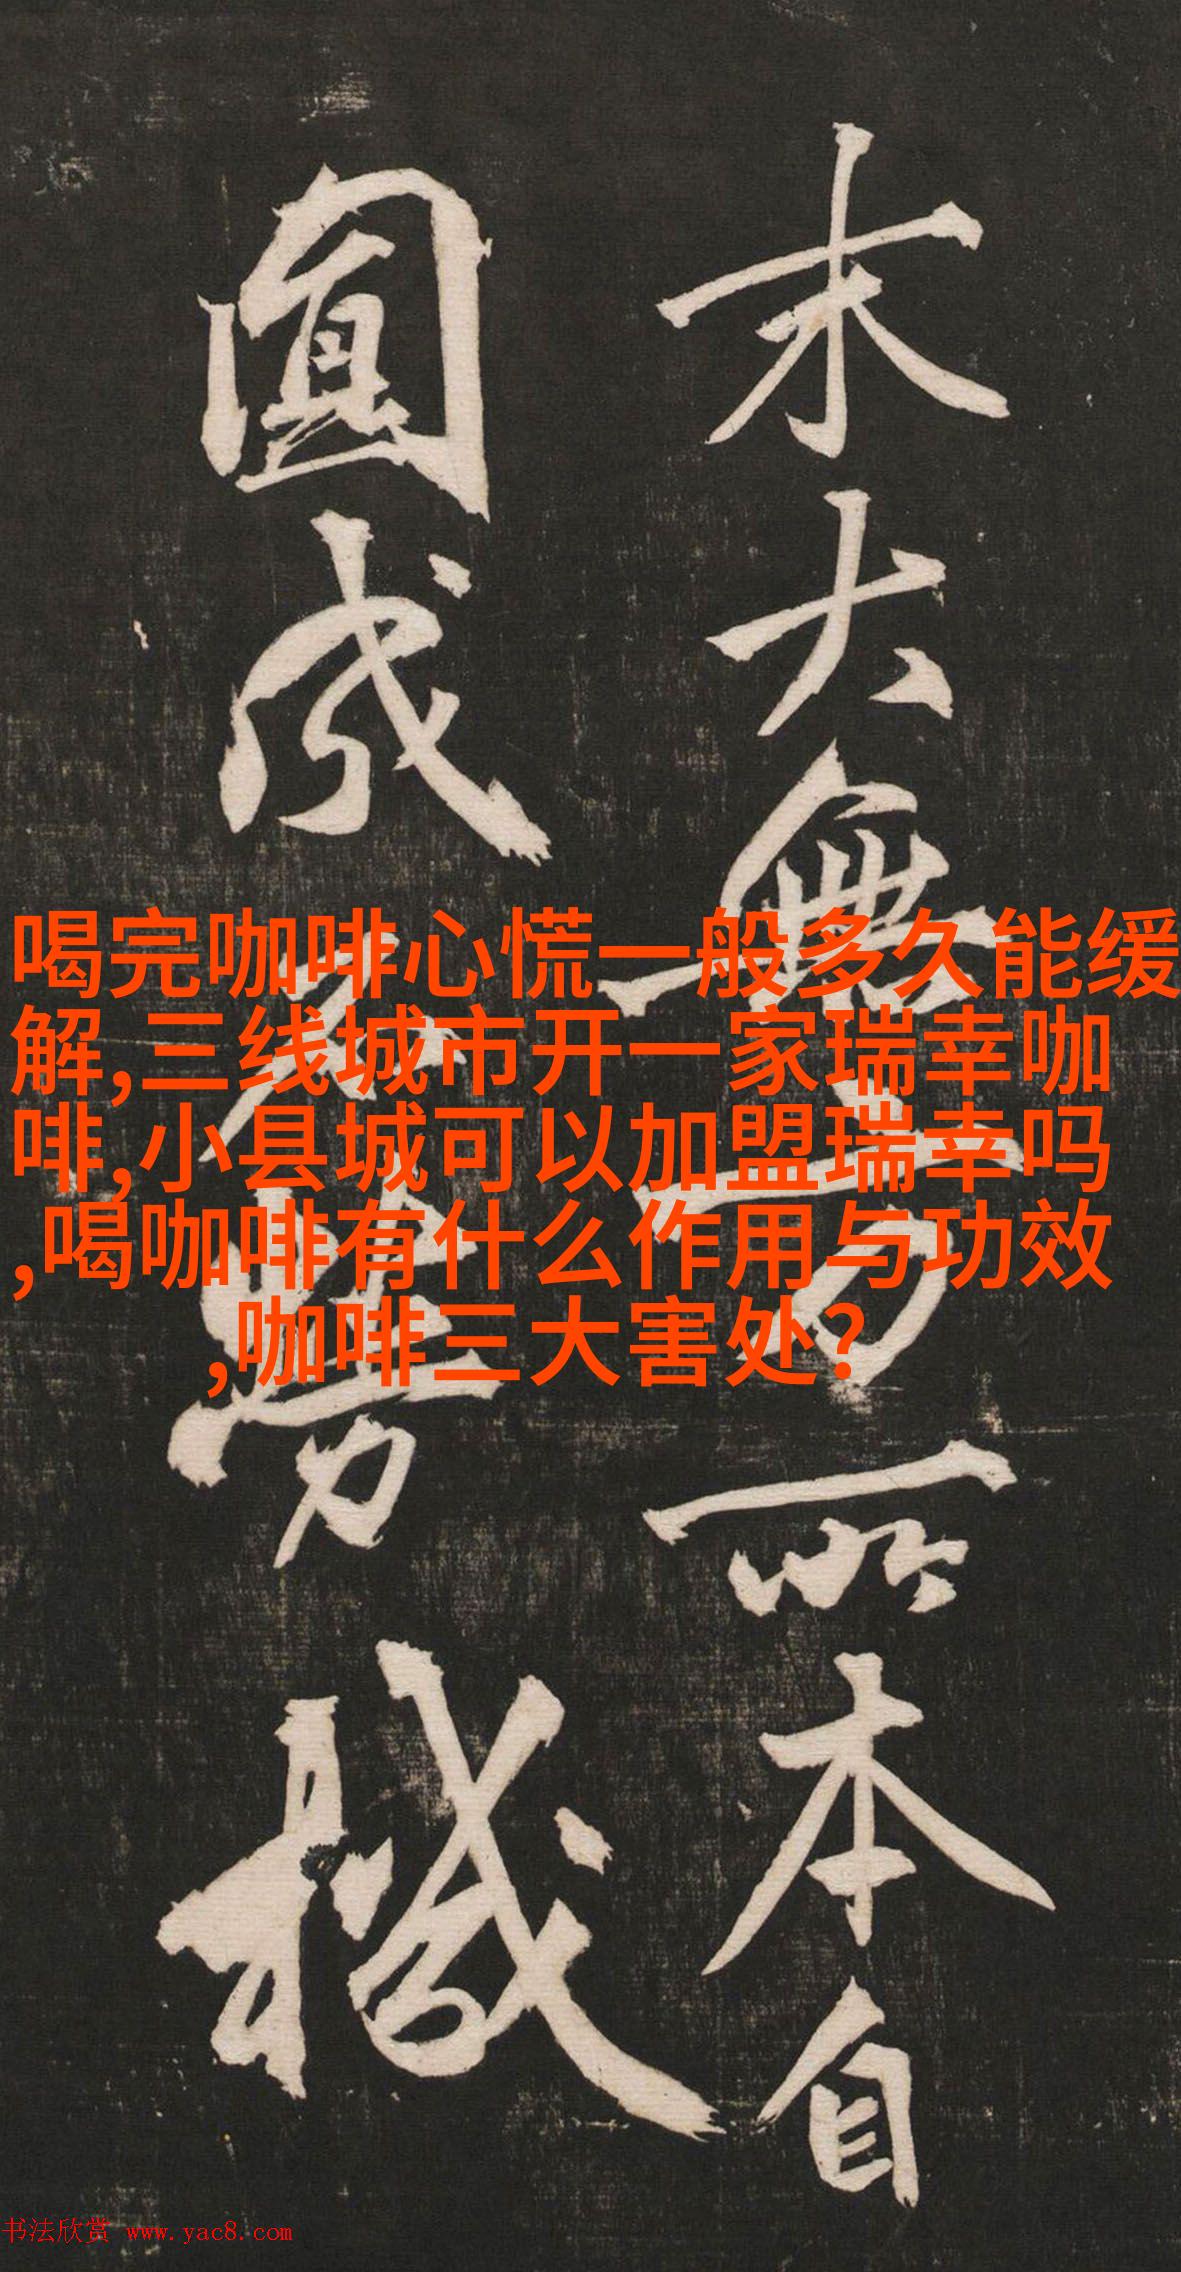 大無方所本自
圓成不勞機
喝完咖啡心慌一般多久能缓
解,三线城市开一家瑞幸咖
啡,小县城可以加盟瑞幸吗
,喝咖啡有什么作用与功效
,咖啡三大害处?
书法欣赏 www.yac8.com